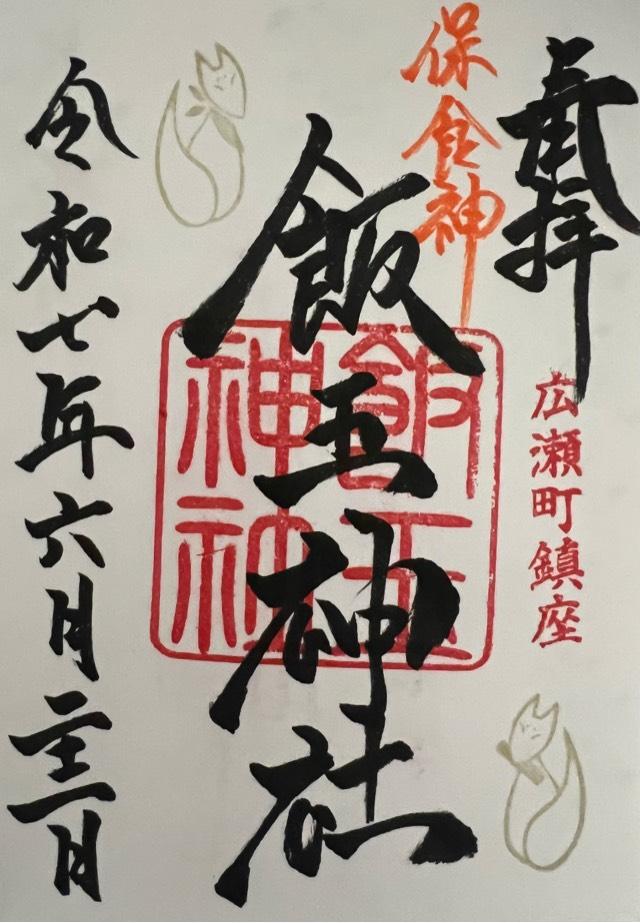 奉拝
広瀬町鎮座
保食神
飯玉神社
飯玉
神社
令和七年六月二十二日